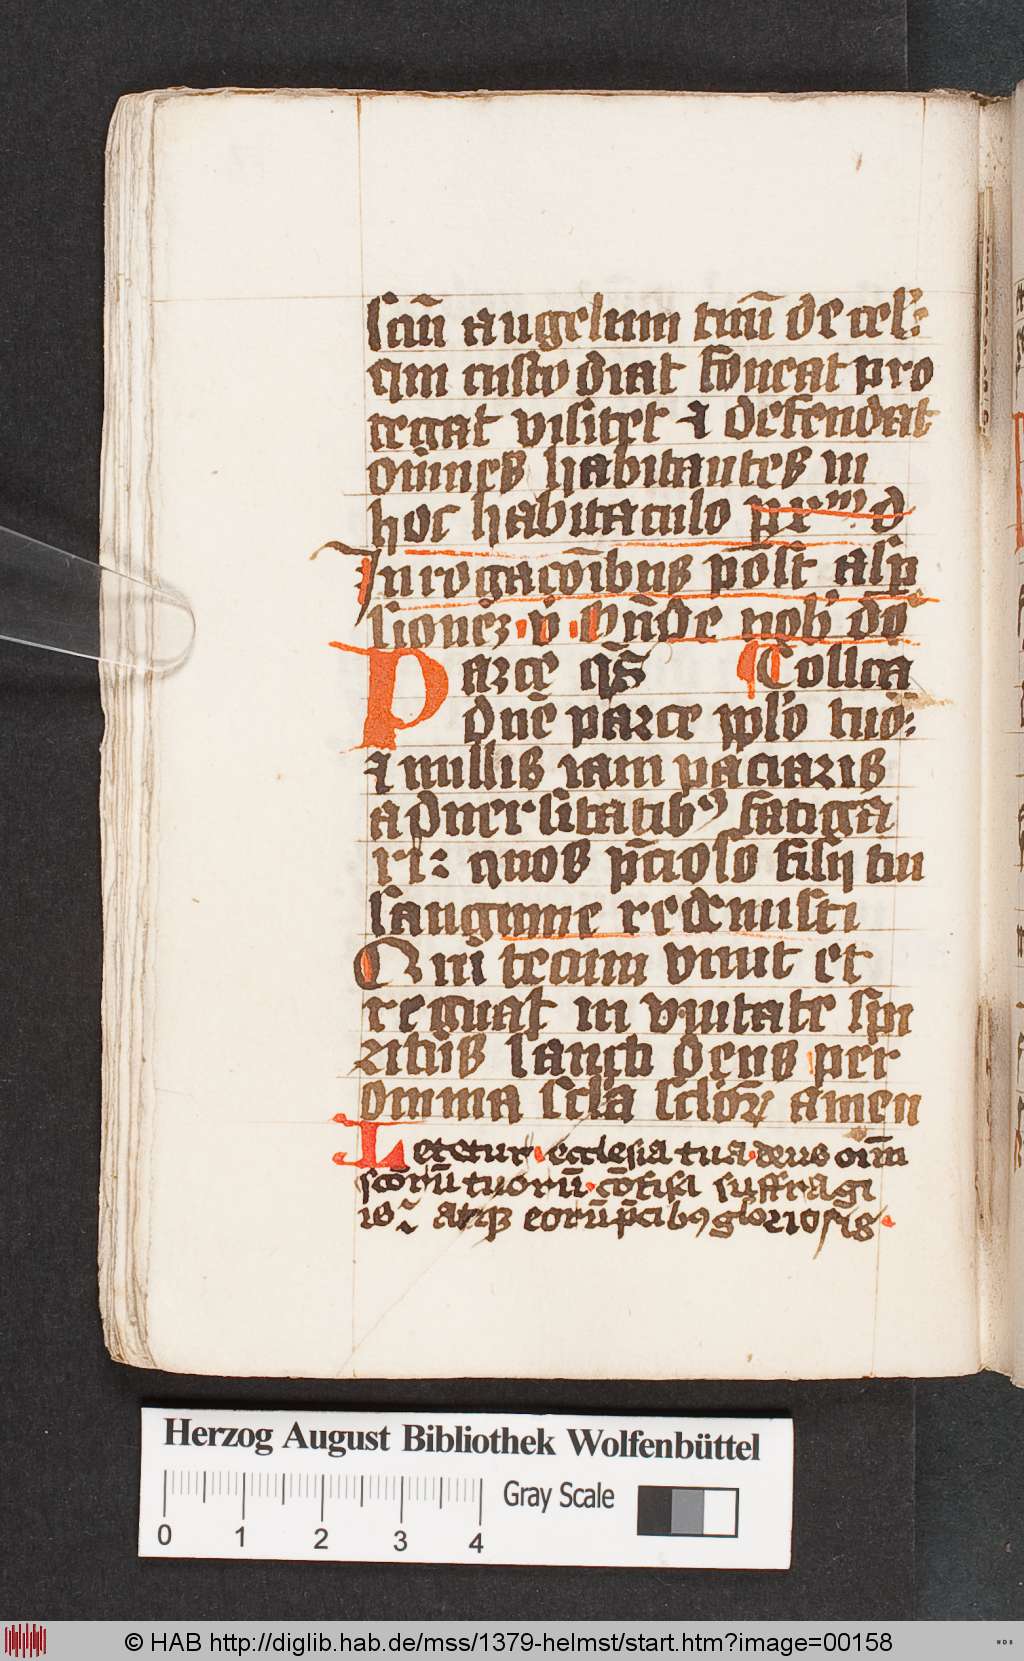 scm̄ angelum tuū de cel̉:
qui custodiat foueat pro
tegat visitet ⁊ defendat
om̄nes habitantes in
hoc habitaculo p
In rogacōibus pōst asp
sionēz · v̄ · Oн̄de nob̉ dō
Parce q̄s Coll̄ca
dn̄e parce pplo tuo:
⁊ nullis iam paciaris
aduersitatibꝰ fatiga
ri: quos p̄cioso filij tui
sanguine redemisti
Qui tecum viuit et
regnat in vnitate spi
ritus sancti deus per
omnia scl̄a scl̄oꝝ amen
Letetur · ecclesia tua · deus oīm
scōrū tuorū · cōfisa suffragi
is atqꝫ eorū p̄cibꝰ gloriosis ·
Herzog August Bibliothek Wolfenbüttel
Gray Scale
0 1 2 3 4
© HAB http://diglib.hab.de/mss/1379-helmst/start.htm?image=00158